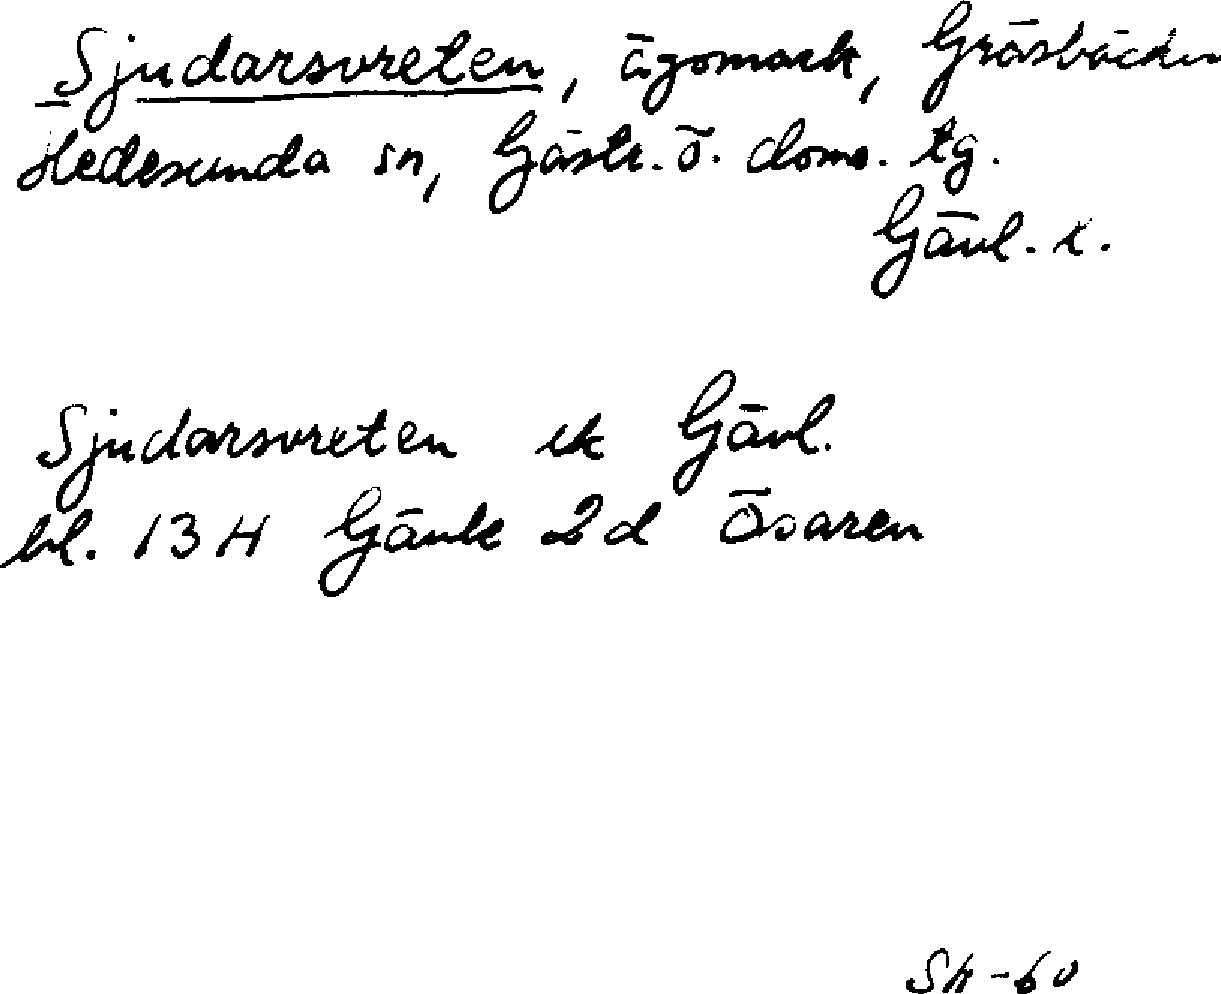 Sjudarsvreten, ägomark, Gräsbäcken
Hedesunda sn, Gästr. ö. doms. tg.
Gävl. l.
Sjudarsvreten ek Gävl.
bl. 13H Gävle 2d Ösaren
Sh-60